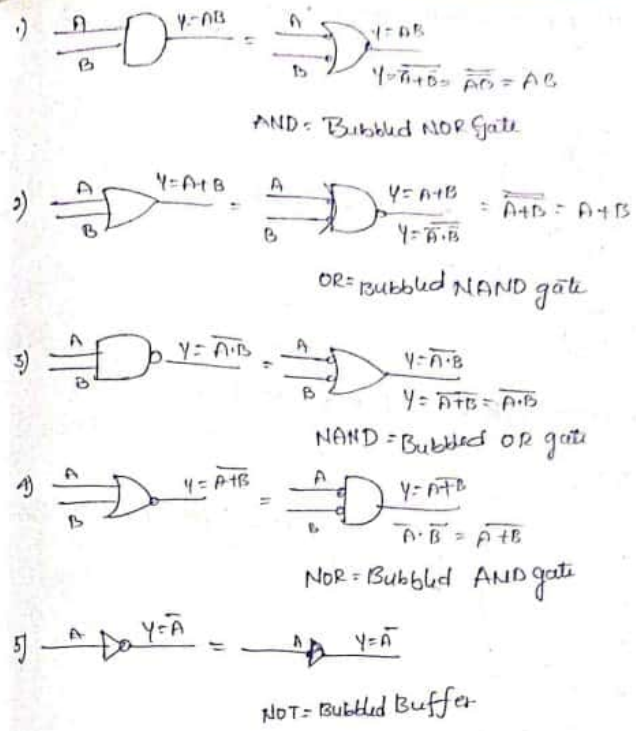 1) A B Y=AB = A B Y=AB
Y=\overline{\overline{A}+\overline{B}}= \overline{\overline{AB}} = AB
AND= Bubbled NOR Gate
2) A B Y=A+B = A B Y=A+B = \overline{\overline{A+B}} = A+B
Y=\overline{\overline{A}.\overline{B}}
OR= Bubbled NAND gate
3) A B Y=\overline{A.B} = A B Y=\overline{A.B}
Y= \overline{A}+\overline{B} = \overline{A.B}
NAND = Bubbled OR gate
4) A B Y=\overline{A+B} = A B Y=\overline{A+B}
\overline{A}.\overline{B} = \overline{A+B}
NOR = Bubbled AND gate
5) A Y=\overline{A} = A Y=\overline{A}
NOT= Bubbled Buffer